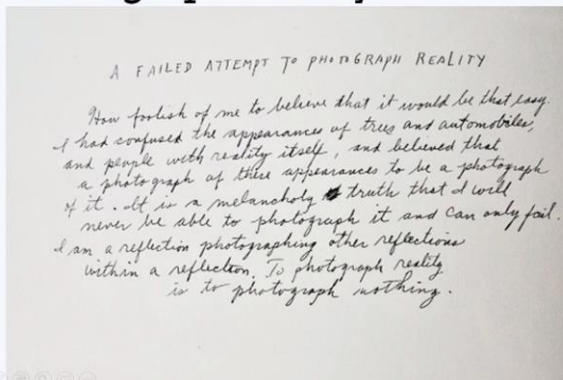 A FAILED ATTEMPT TO PHOTOGRAPH REALITY
How foolish of me to believe that it would be that easy.
I had confused the appearances of trees and automobiles,
and people with reality itself, and believed that
a photograph of these appearances to be a photograph
of it. It is a melancholy truth that I will
never be able to photograph it and can only fail.
I am a reflection photographing other reflections
within a reflection. To photograph reality
is to photograph nothing.